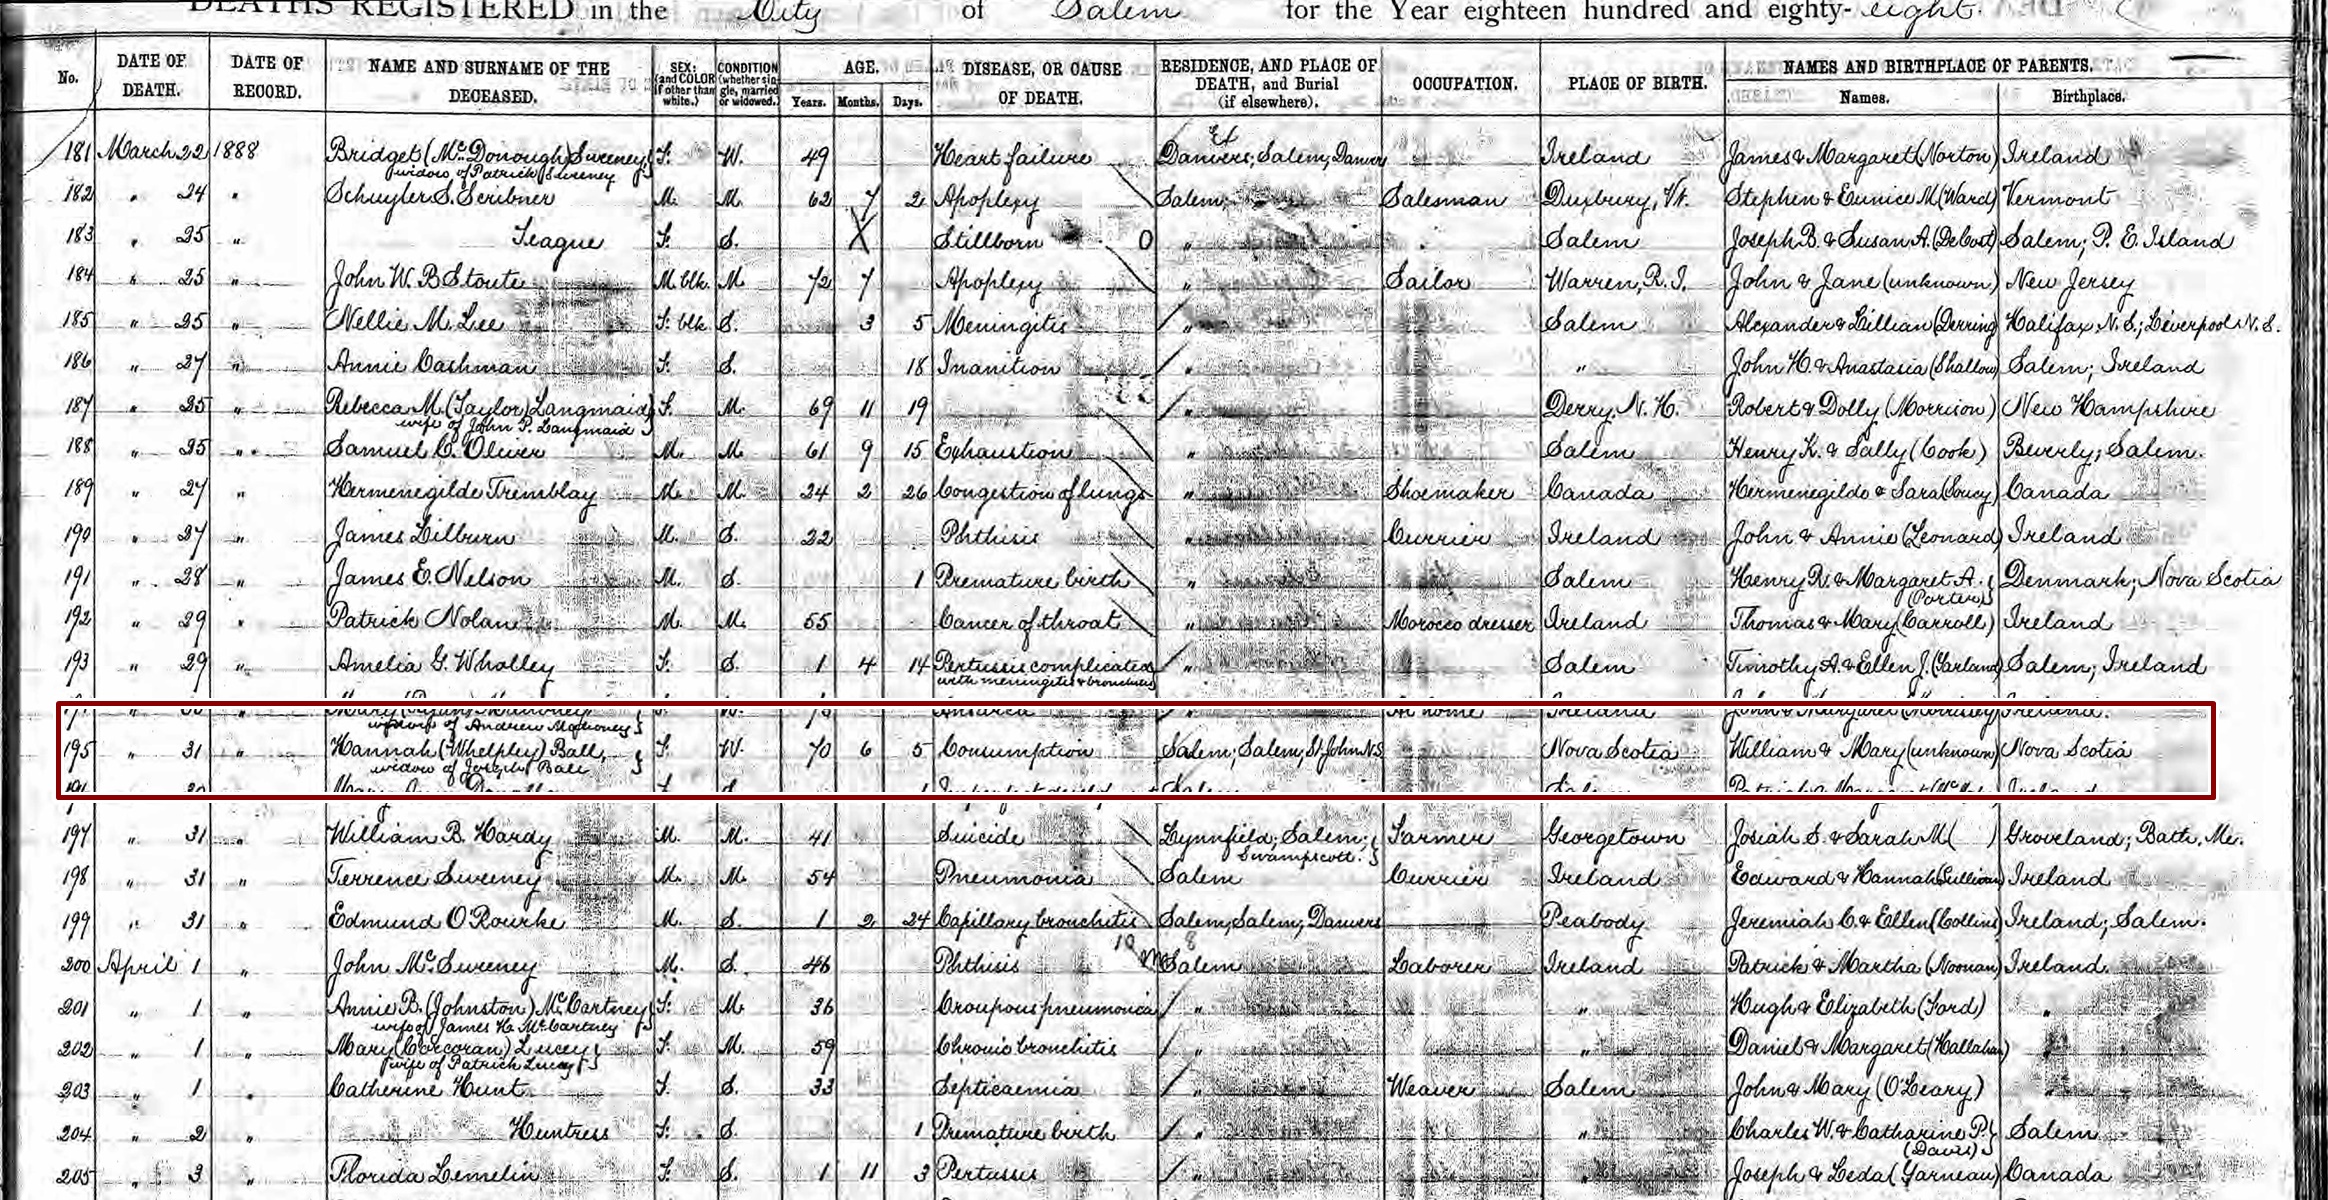 DEATHS REGISTERED in the City of Salem for the Year eighteen hundred and eighty-eight.
No. DATE OF DEATH. DATE OF RECORD. NAME AND SURNAME OF THE DECEASED. SEX; (and COLOR if other than white.) CONDITION (whether single, married or widowed.) AGE. Years. Months. Days. DISEASE, OR CAUSE OF DEATH. RESIDENCE, AND PLACE OF DEATH, and Burial (if elsewhere). OCCUPATION. PLACE OF BIRTH. NAMES AND BIRTHPLACE OF PARENTS. Names. Birthplace.
181 March 22 1888 Bridget (McDonough) Sweeney F. W. 49 Heart failure Danvers; Salem; Danvers Ireland James & Margaret (Norton) Ireland
widow of Patrick Sweeney
182 " 24 " Schuyler S. Scribner M. M. 62 7 2 Apoplexy Salem; Salesman Duxbury, Vt. Stephen & Eunice M (Ward) Vermont
183 " 25 " Teague F. S. Stillborn 0 " Salem Joseph B. & Susan A. (DeCost) Salem; P. E. Island
184 " 25 " John W. B Stoute M. blk. M. 72 7 Apoplexy " Sailor Warren, R. I. John & Jane (unknown) New Jersey
185 " 25 " Nellie M. Lee F. blk S. 3 5 Meningitis " Salem Alexander & Lillian (Derring) Halifax, N. S.; Liverpool N. S.
186 " 27 " Annie Cashman F. S. 18 Inanition " " John H. & Anastasia (Shallow) Salem; Ireland
187 " 25 " Rebecca M. (Taylor) Langmaid F. M. 69 11 19 " Derry, N. H. Robert & Dolly (Morrison) New Hampshire
wife of John P. Langmaid
188 " 25 " Samuel C. Oliver M. M. 61 9 15 Exhaustion " Salem Henry K. & Sally (Cook) Beverly; Salem.
189 " 27 " Hermenegilde Tremblay M. M. 24 2 26 Congestion of lungs " Shoemaker Canada Hermenegildo & Sara (Soucy) Canada
190 " 27 " James Lilburn M. S. 22 Phthisis " Currier Ireland John & Annie (Leonard) Ireland
191 " 28 " James E. Nelson M. S. 1 Premature birth " Salem Henry R. & Margaret A. Denmark; Nova Scotia
(Porter)
192 " 29 " Patrick Nolan M. M. 55 Cancer of throat " Morocco dresser Ireland Thomas & Mary (Carroll) Ireland
193 " 29 " Amelia G. Wholley F. S. 1 4 14 Pertussis complicated " Salem Timothy A. & Ellen J. (Garland) Salem; Ireland
with meningitis & bronchitis
At home Ireland
widow of Andrew Mahoney
195 " 31 " Hannah (Whelpley) Ball, F. W. 70 6 5 Consumption Salem; Salem; St. John N.S. Nova Scotia William & Mary (unknown) Nova Scotia
widow of Joseph Ball
197 " 31 " William B. Hardy M. M. 41 Suicide Lynnfield; Salem; Farmer Georgetown Josiah S. & Sarah M ( ) Groveland; Bath, Me.
Swampscott.
198 " 31 " Terrence Sweeney M. M. 54 Pneumonia Salem Currier Ireland Edward & Hannah (Sullivan) Ireland
199 " 31 " Edmund O'Rourke M. S. 1 2 24 Capillary bronchitis Salem; Salem; Danvers Peabody Jeremiah C. & Ellen (Collins) Ireland; Salem.
200 April 1 " John McSweeney M. S. 46 Phthisis Salem Laborer Ireland Patrick & Martha (Noonan) Ireland.
201 " 1 " Annie B. (Johnston) McCartney F. M. 36 Croupous pneumonia " " Hugh & Elizabeth (Ford) "
wife of James H. McCartney
202 " 1 " Mary (Corcoran) Lucey F. M. 59 Chronic bronchitis " Daniel & Margaret (Hallahan) "
wife of Patrick Lucey
203 " 1 " Catherine Hunt F. S. 33 Septicaemia " Weaver Salem John & Mary (O'Leary) "
204 " 2 " Huntress F. S. 1 Premature birth " " Charles W. & Catharine P. Salem
(Davis)
205 " 3 " Florida Lemelin F. S. 1 11 3 Pertussis " " Joseph & Leda (Garneau) Canada